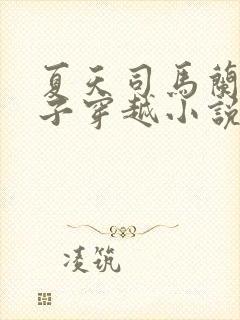 夏天司馬蘭
子穿越小說
凌筑